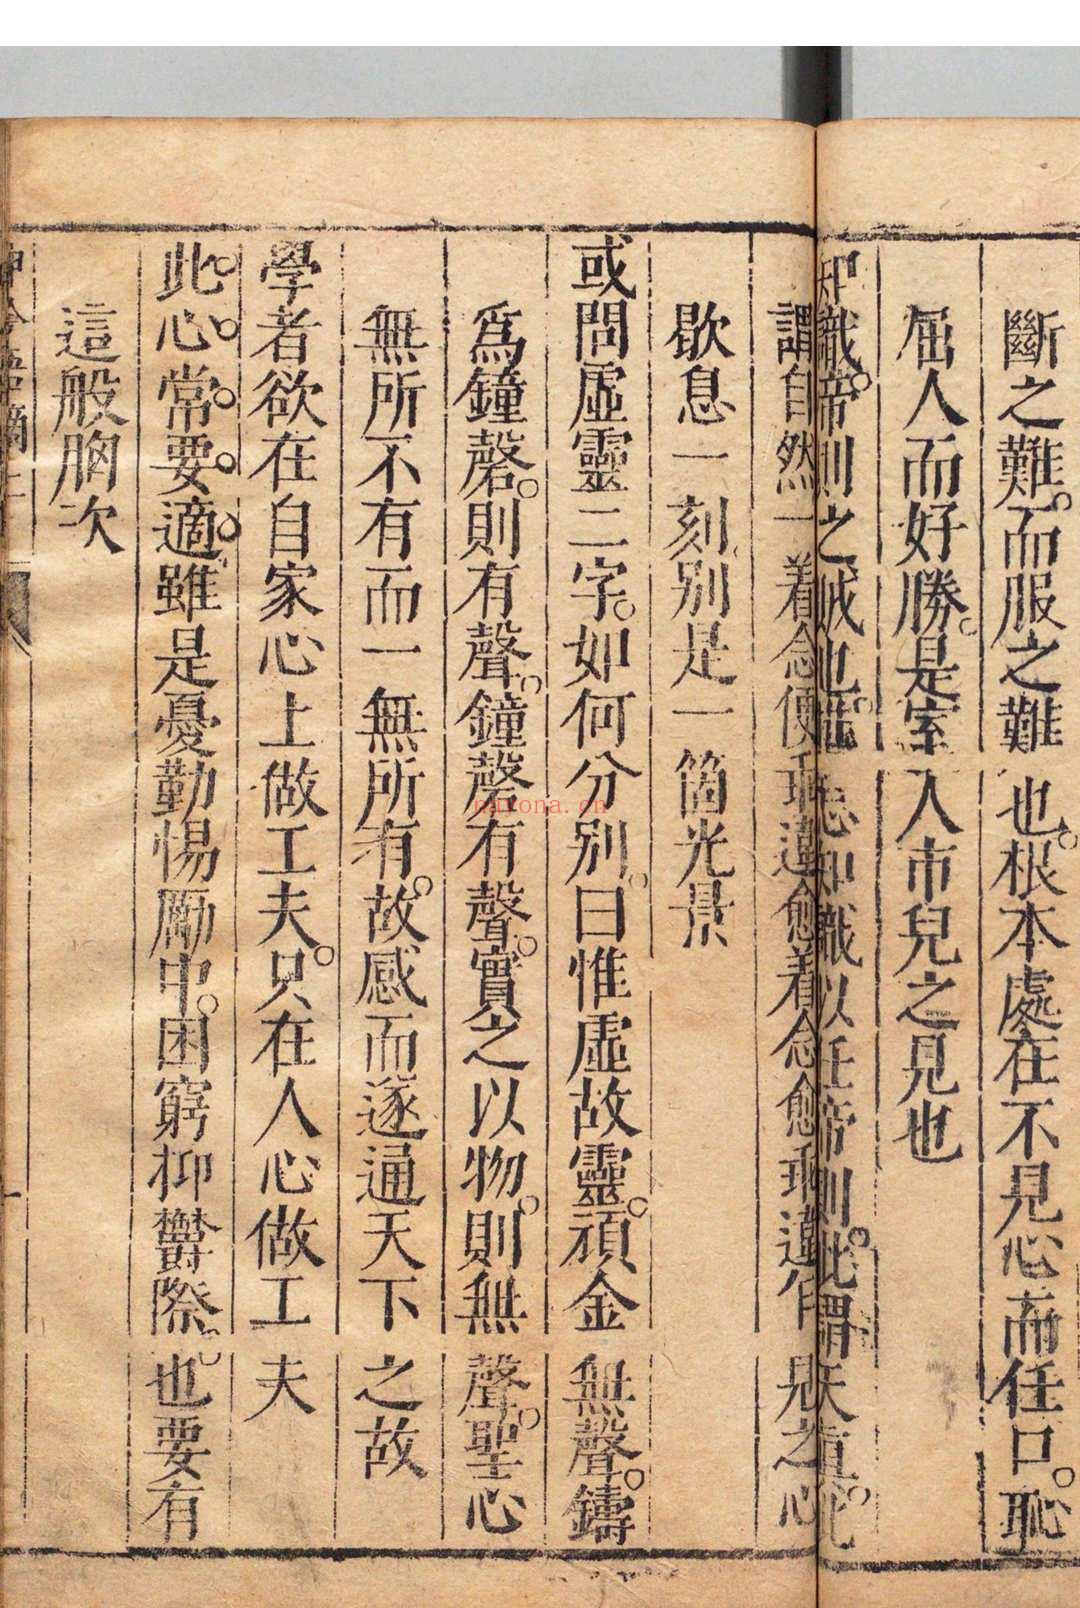 斷之難。而服之難也。根本處在不見心而任口。恥
屈人而好勝。是室人市兒之見也
知識。帝則之賊也。忘知識以任帝則。此謂天真。此
謂自然一着念便乖違愈着念愈乖違乍見之心
歇息一刻。別是一箇光景
或問虛靈二字。如何分別。曰惟虛故靈。頑金無聲。鑄
為鐘磬。則有聲。鐘磬有聲。實之以物。則無聲。聖心
無所不有而一無所有。故感而遂通天下之故
學者欲在自家心上做工夫。只在人心做工夫
此心常要適。雖是憂勤惕勵中。困窮抑鬱際。也要有
這般胸次
呻吟語摘上
一
nayona.cn